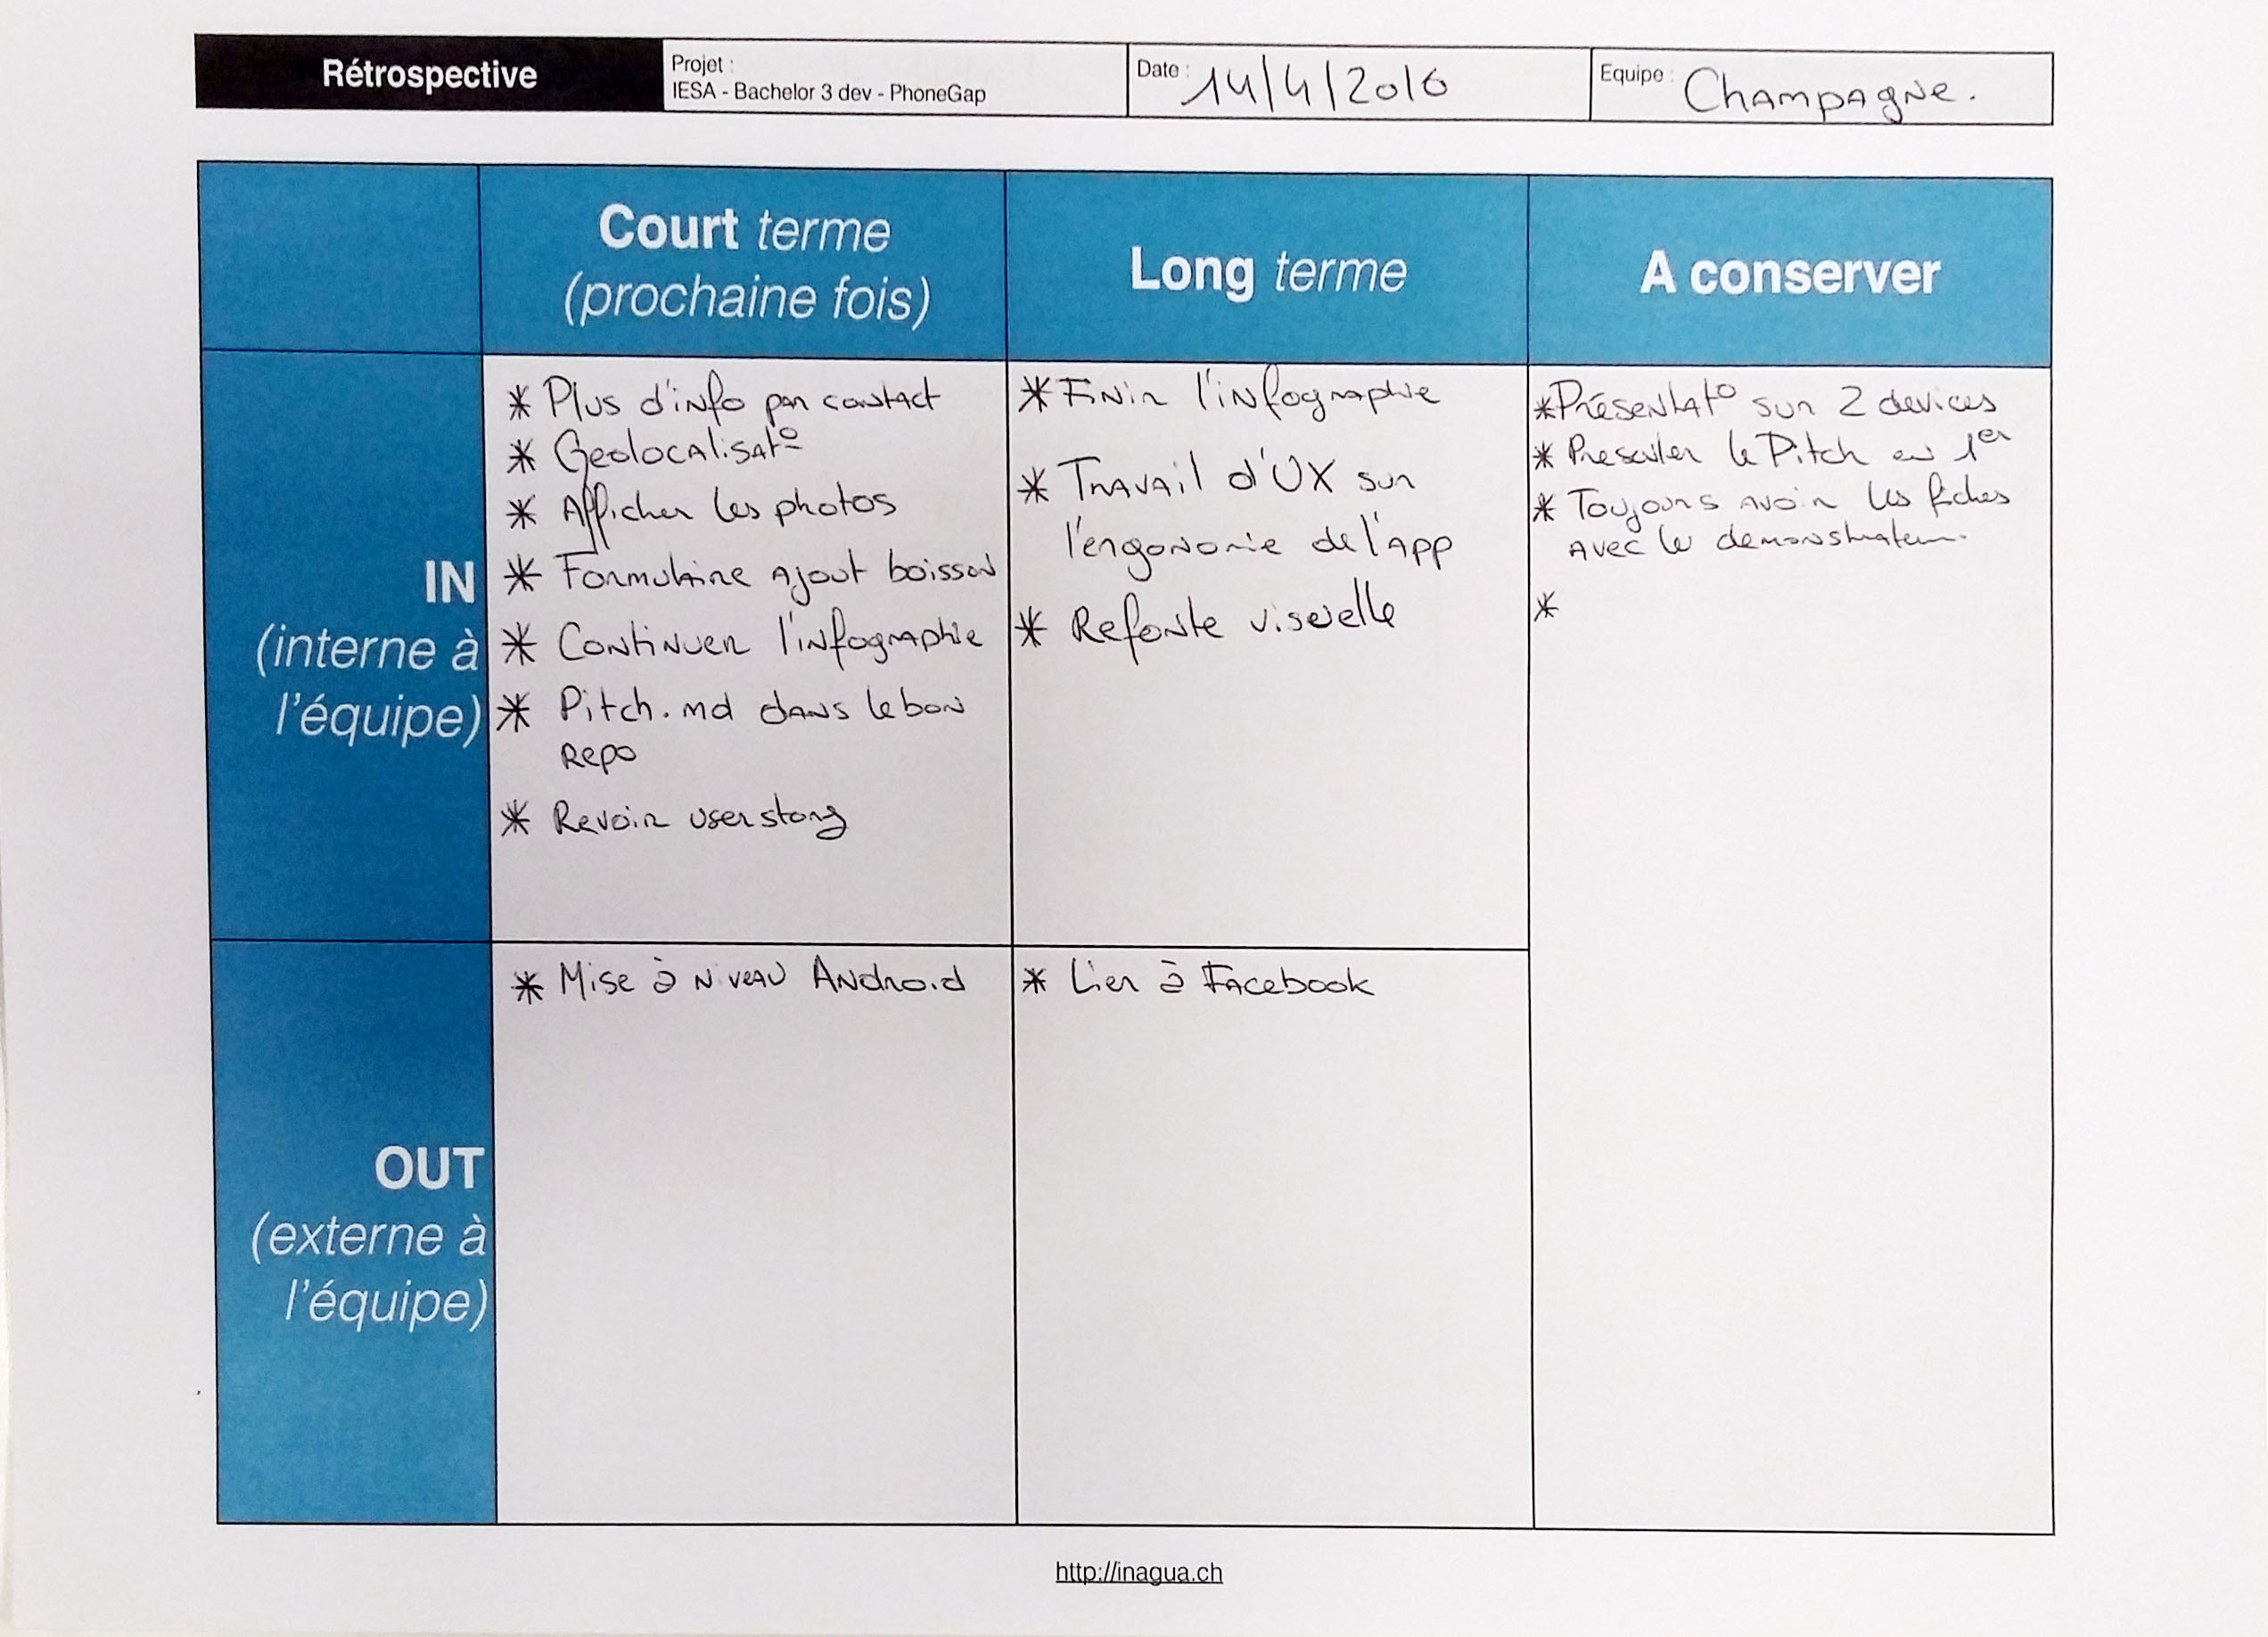 Rétrospective
Projet :
IESA - Bachelor 3 dev - PhoneGap
Date : 14/4/2016
Equipe : Champagne.
Court terme
(prochaine fois)
Long terme
A conserver
IN
(interne à
l'équipe)
* Plus d'info par contact
* Geolocalisat°
* Afficher les photos
* Formulaire ajout boisson
* Continuer l'infographie
* Pitch.md dans le bon
Repo
* Revoir user story
* Finir l'infographie
* Travail d'UX sur
l'ergonomie de l'app
* Refonte visuelle
* Présentat° sur 2 devices
* Presenter le Pitch en 1er
* Toujours avoir les fiches
avec le demonstrateur.
*
OUT
(externe à
l'équipe)
* Mise à niveau Android
* Lier à Facebook
http://inagua.ch